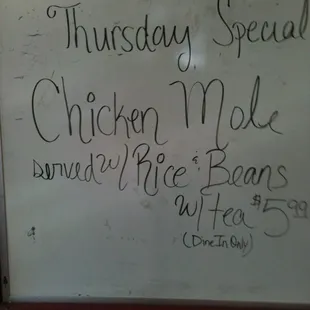 Thursday Special
Chicken Mole
served w/ Rice & Beans
w/ tea $5.99
(Dine In Only)